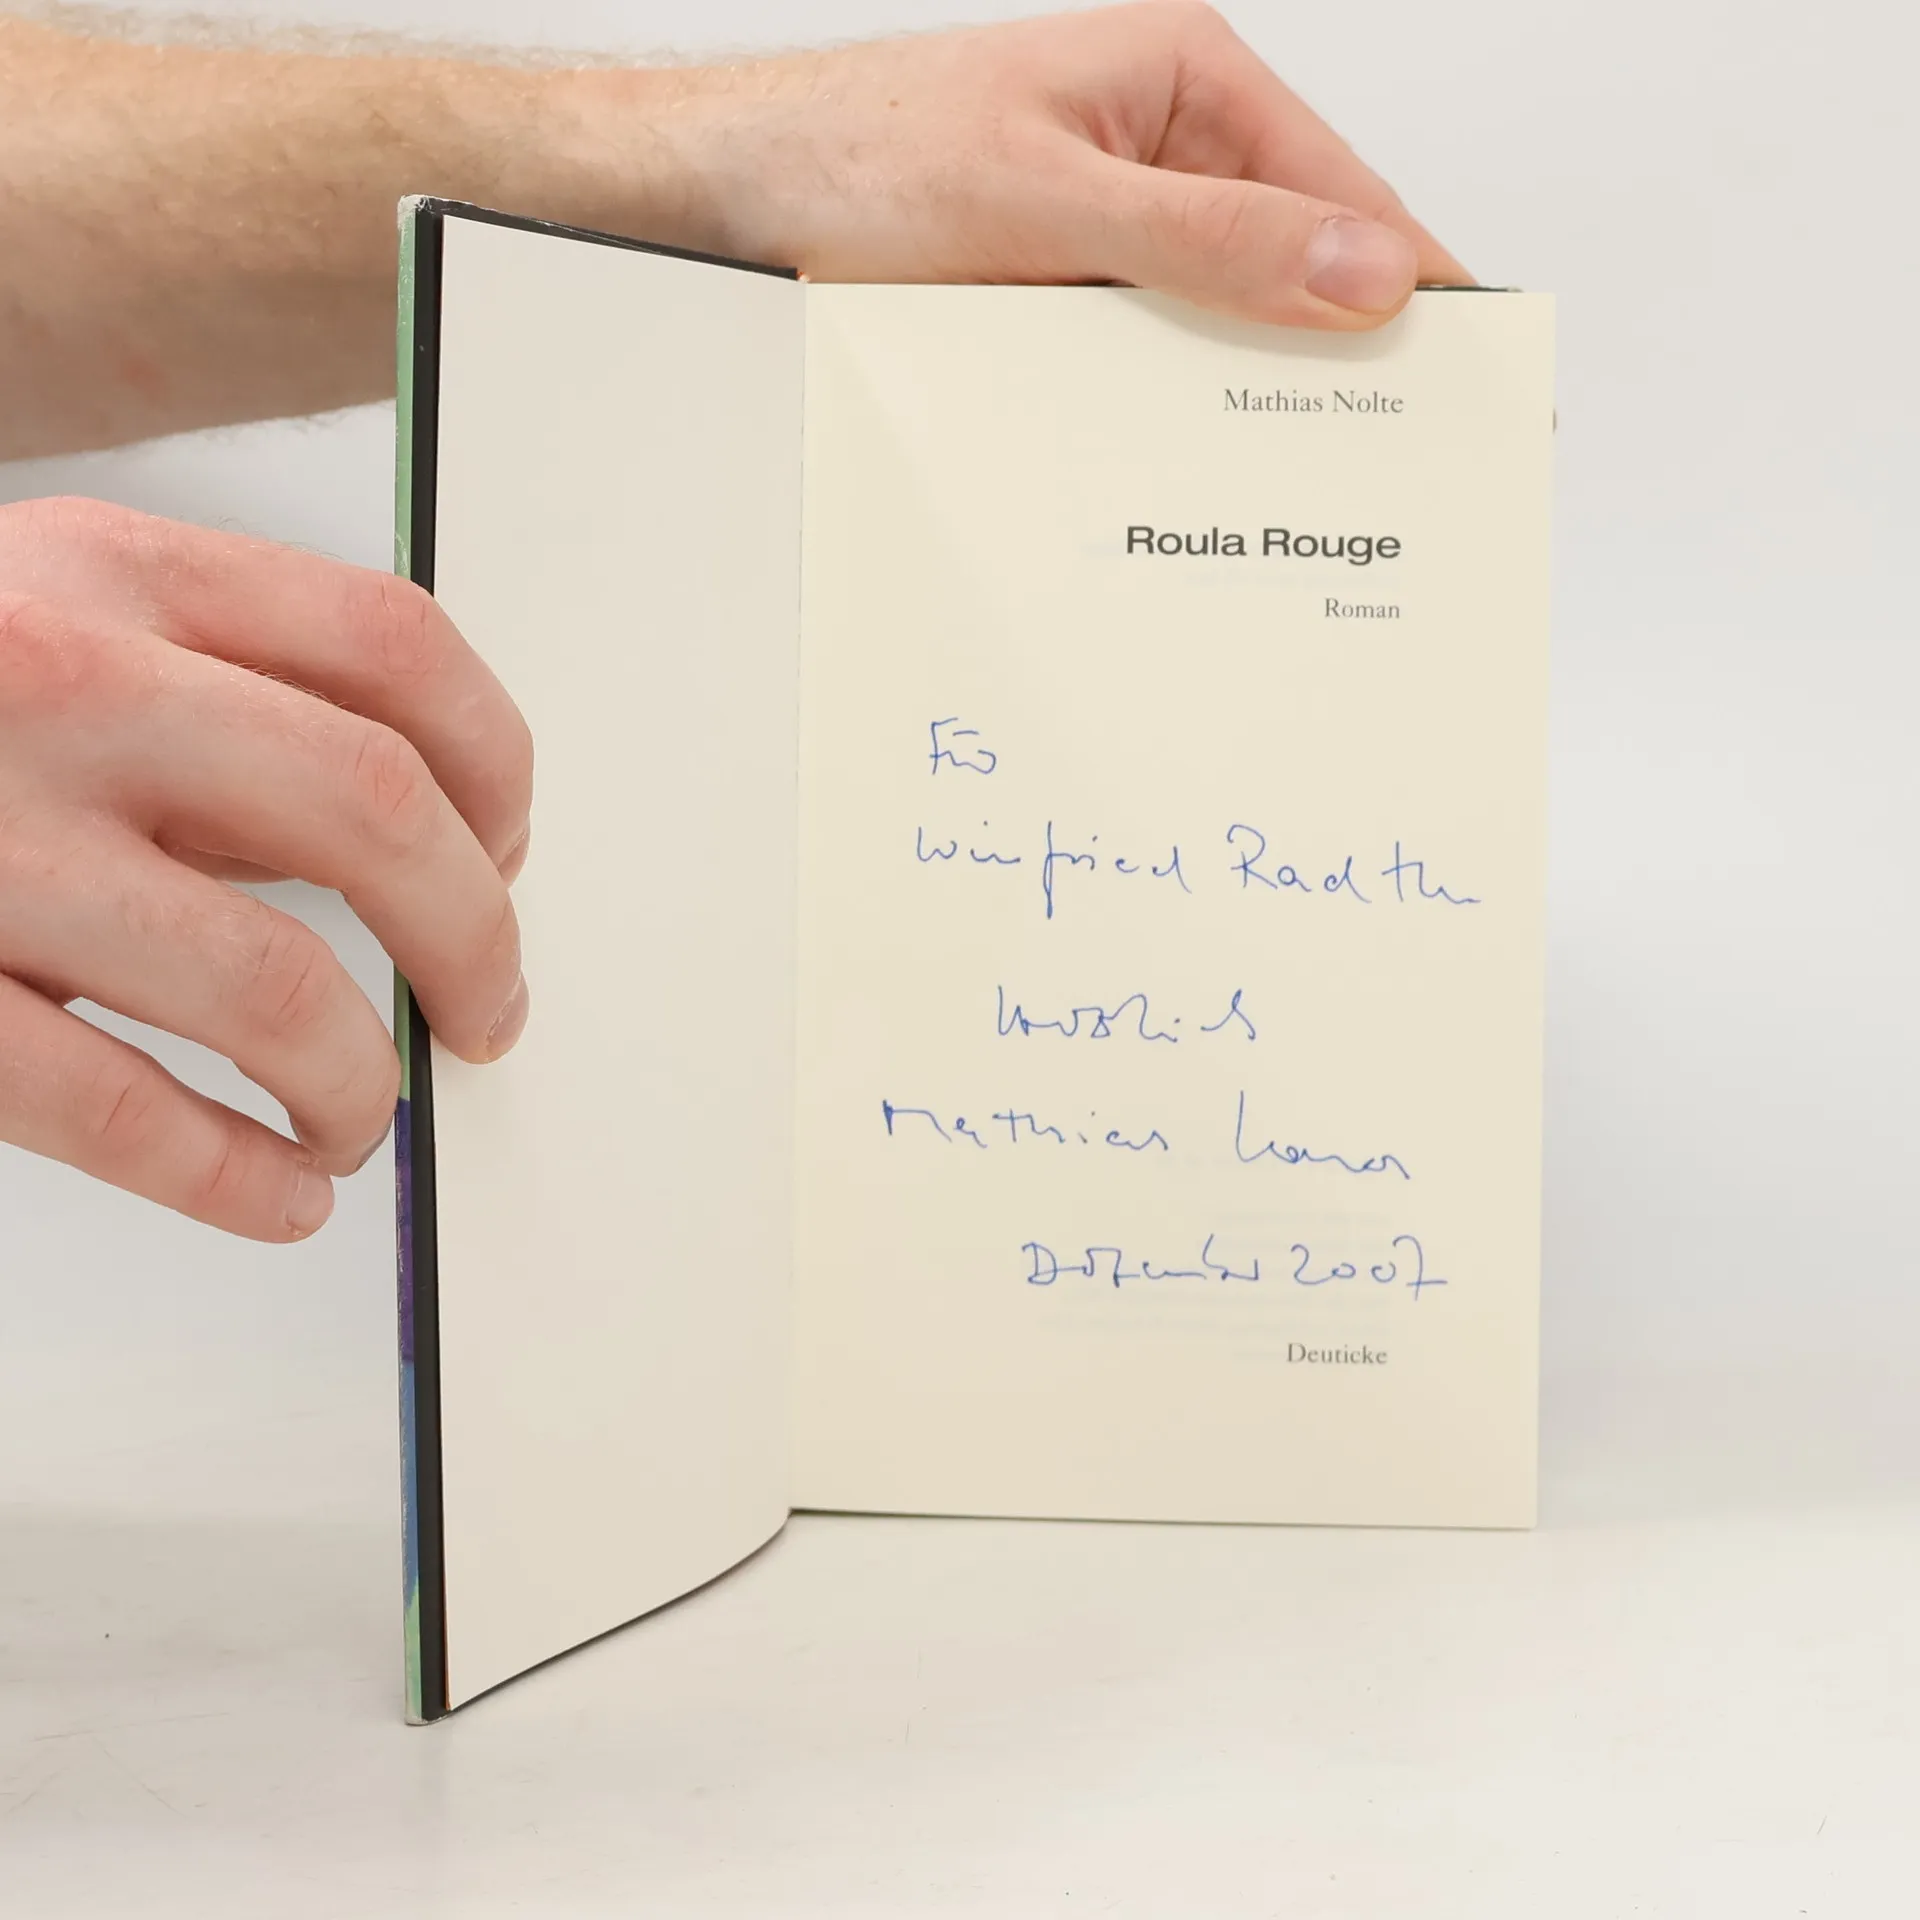 Mathias Nolte
Roula Rouge
Roman
Für
Winfried Radtke
herzlich
Mathias
Dezember 2007
Deuticke